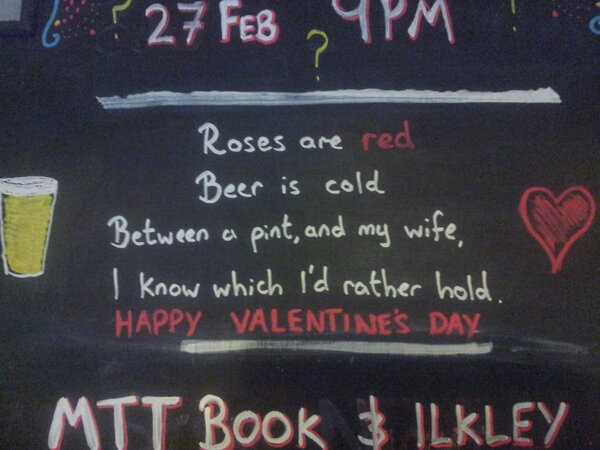 27 FEB 9PM
?
?
Roses are red
Beer is cold
Between a pint, and my wife,
I know which I'd rather hold.
HAPPY VALENTINE'S DAY
MTT BOOK & ILKLEY